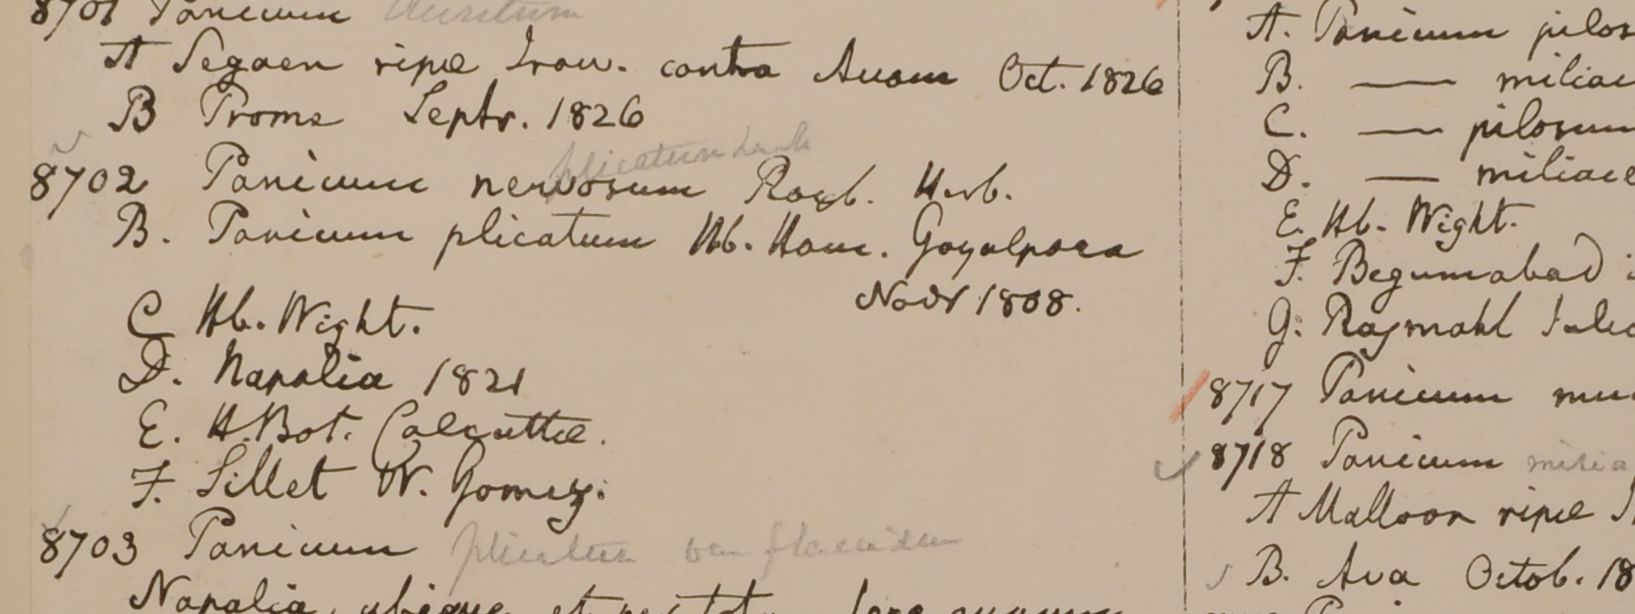 8701 Panicum auritum
A Segaen ripæ Iraw. contra Avam Oct. 1826
B Prome Septr. 1826
plicatum Lamk
8702 Panicum nervosum Roxb. Herb.
B. Panicum plicatum Hb. Ham. Goyalpara
Novr 1808.
C Hb. Wight.
D. Napalia 1821
E. H. Bot. Calcutta.
F. Sillet W. Gomez.
8703 Panicum var
Napalia, ubique et
A. Panicum pilos
B. — miliac
C. — pilosum
D. — miliace
E. Hb. Wight.
F. Begumabad
G. Rajmahl
8717 Panicum
8718 Panicum milia
A Malloon ripæ
B. Ava Octob. 18